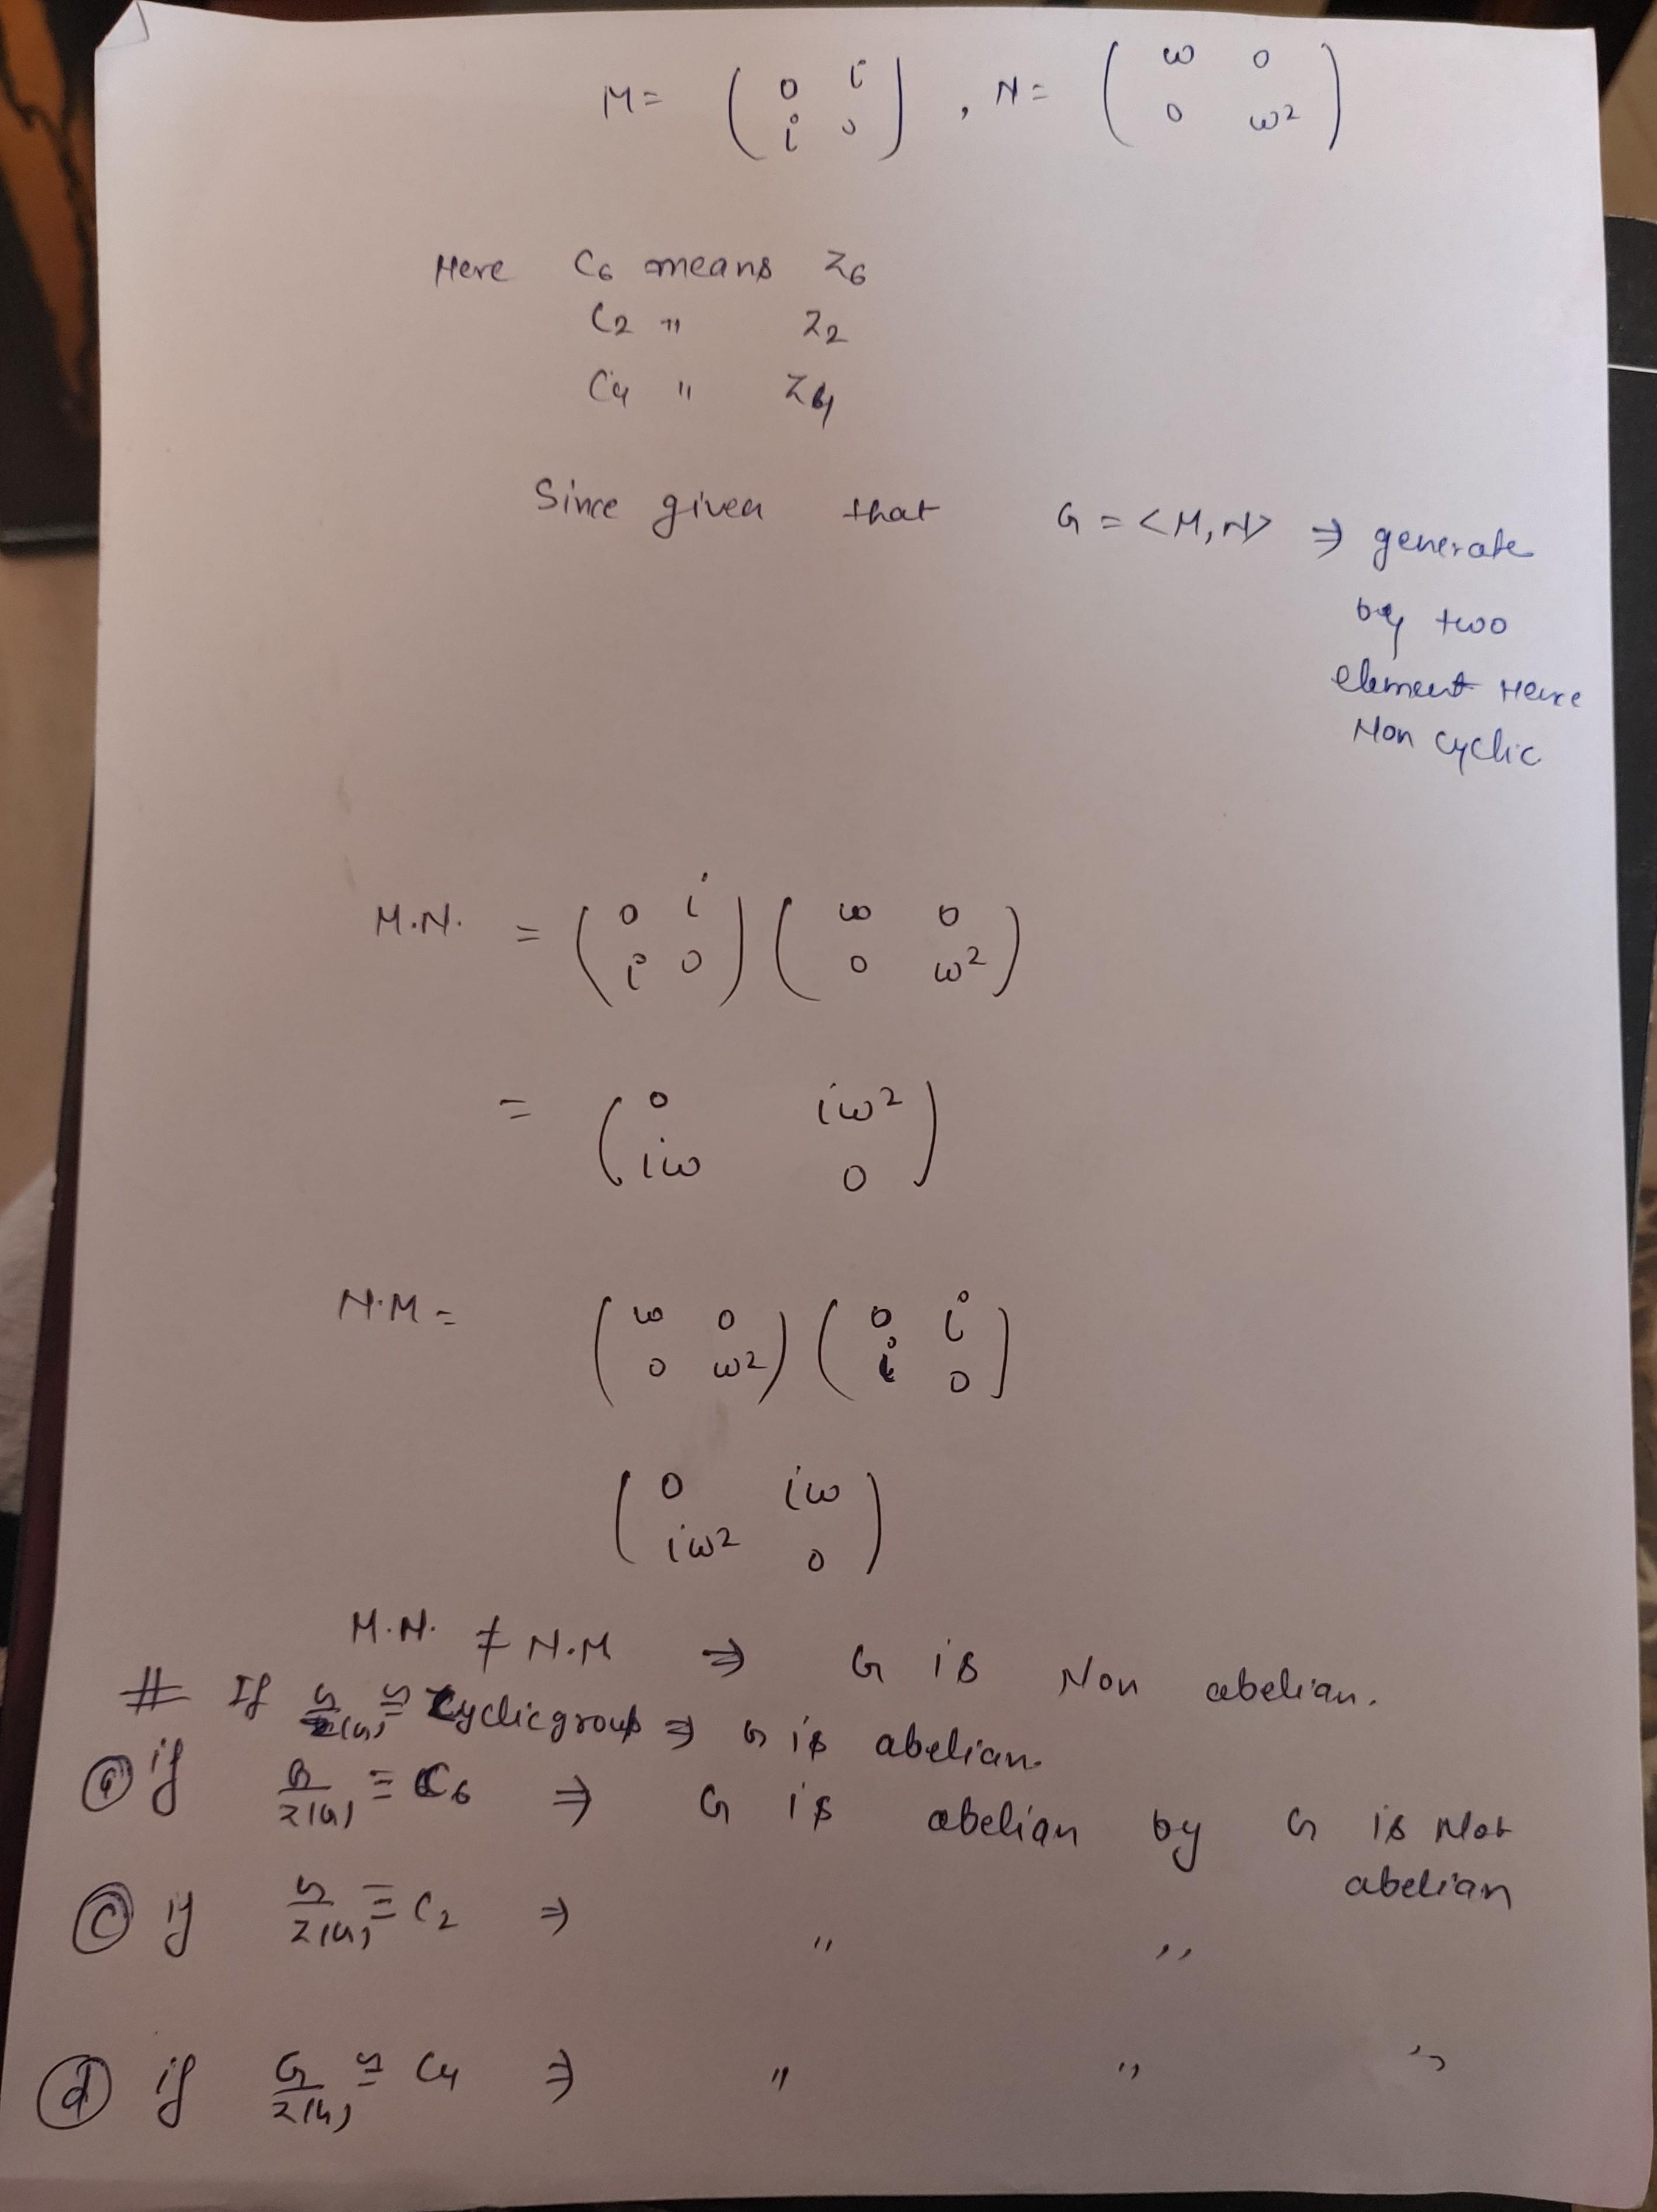 M = ( 0 i ) , N = ( ω 0 )
( i 0 ) ( 0 ω2 )
Here C6 means Z6
C2 " Z2
C4 " Z4
Since given that G = <M, N> ⇒ generate
by two
element Hence
Non cyclic
M.N. = ( 0 i ) ( ω 0 )
( i 0 ) ( 0 ω2 )
= ( 0 iω2 )
( iω 0 )
N.M = ( ω 0 ) ( 0 i )
( 0 ω2 ) ( i 0 )
( 0 iω )
( iω2 0 )
M.N. ≠ N.M ⇒ G is Non abelian.
# If G/Z(G) ≅ Cyclic group ⇒ G is abelian.
(a) if G/Z(G) ≅ C6 ⇒ G is abelian by G is Not
abelian
(c) if G/Z(G) ≅ C2 ⇒ " "
(d) if G/Z(G) ≅ C4 ⇒ " " "